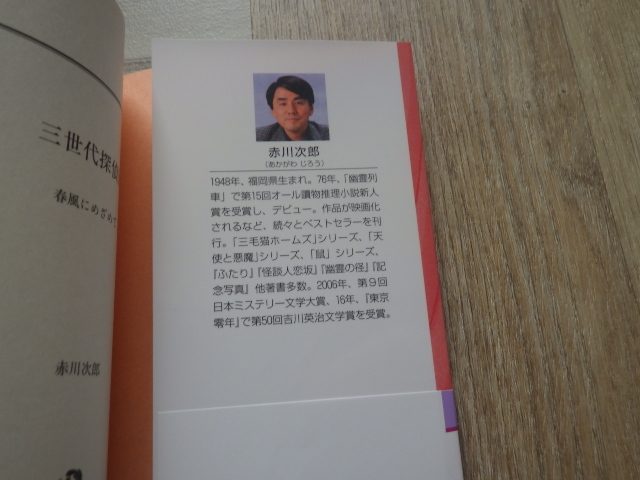 三世代探偵
春風にめざめて
赤川次郎
赤川次郎
(あかがわ じろう)
1948年、福岡県生まれ。76年、「幽霊列
車」で第15回オール讀物推理小説新人
賞を受賞し、デビュー。作品が映画化
されるなど、続々とベストセラーを刊
行。「三毛猫ホームズ」シリーズ、「天
使と悪魔」シリーズ、「鼠」シリーズ、
『ふたり』『怪談人恋坂』『幽霊の径』『記
念写真』他著書多数。2006年、第9回
日本ミステリー文学大賞、16年、『東京
零年』で第50回吉川英治文学賞を受賞。